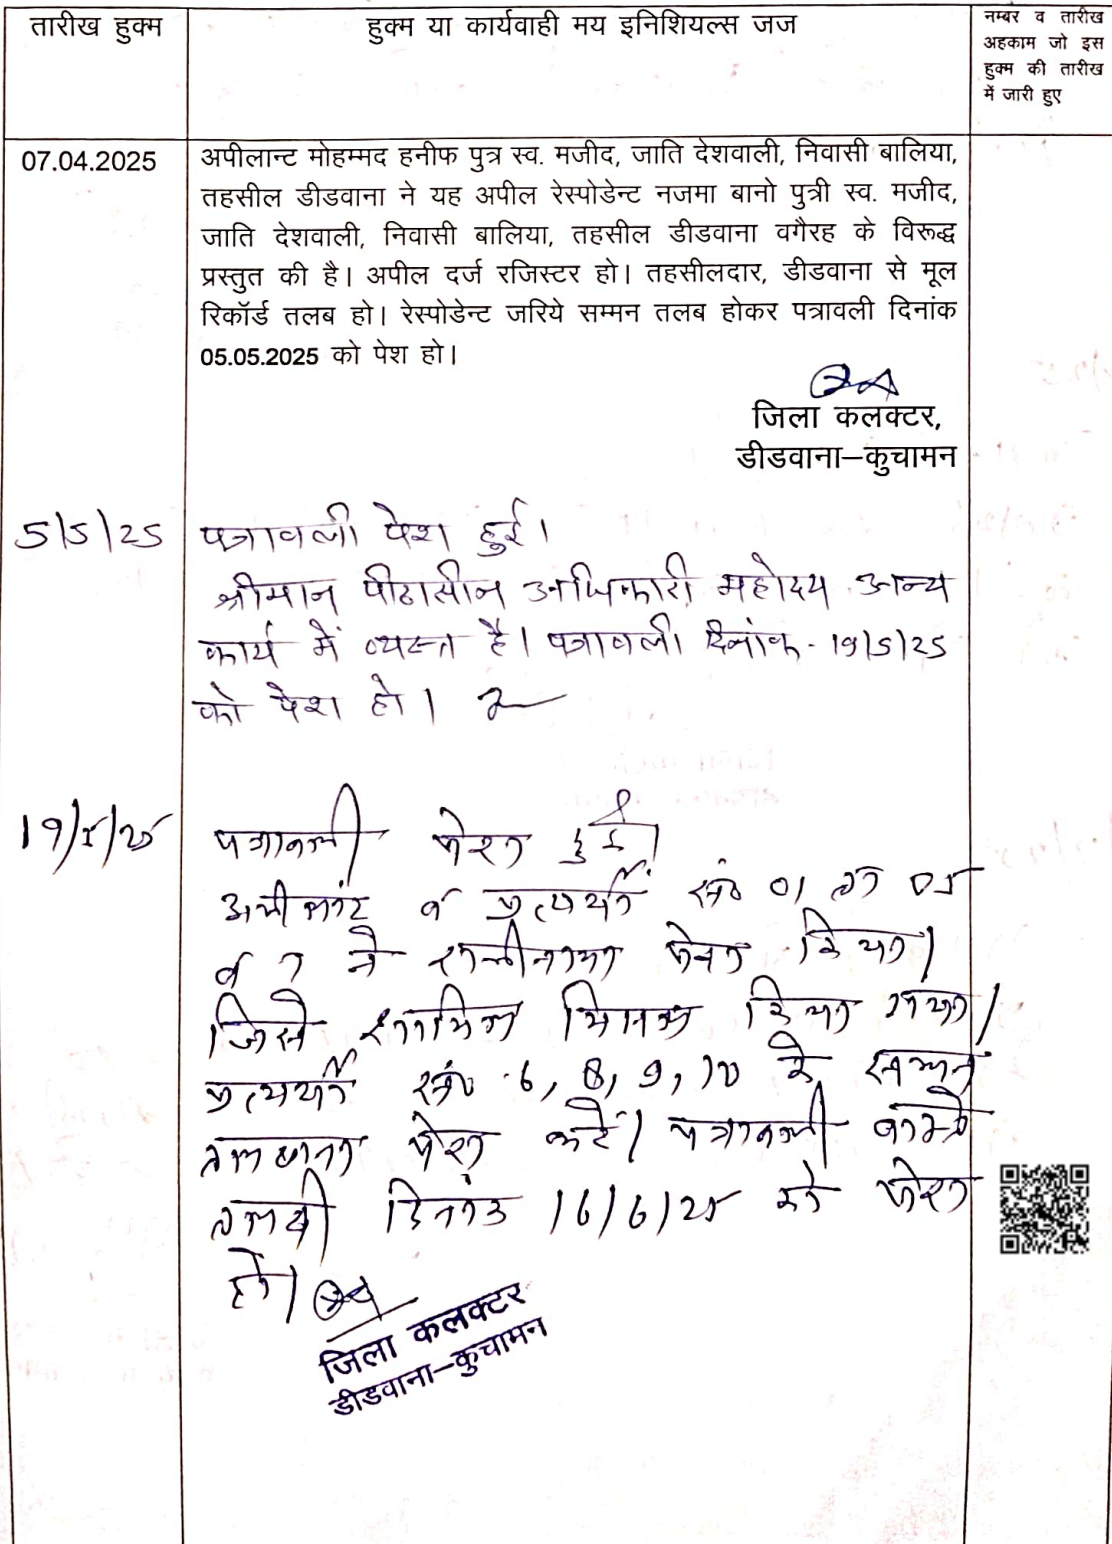 तारीख हुक्म
हुक्म या कार्यवाही मय इनिशियल्स जज
नम्बर व तारीख
अहकाम जो इस
हुक्म की तारीख
में जारी हुए
07.04.2025
अपीलान्ट मोहम्मद हनीफ पुत्र स्व. मजीद, जाति देशवाली, निवासी बालिया,
तहसील डीडवाना ने यह अपील रेस्पोडेन्ट नजमा बानो पुत्री स्व. मजीद,
जाति देशवाली, निवासी बालिया, तहसील डीडवाना वगैरह के विरूद्ध
प्रस्तुत की है। अपील दर्ज रजिस्टर हो। तहसीलदार, डीडवाना से मूल
रिकॉर्ड तलब हो। रेस्पोडेन्ट जरिये सम्मन तलब होकर पत्रावली दिनांक
05.05.2025 को पेश हो।
जिला कलक्टर,
डीडवाना–कुचामन
5/5/25 पत्रावली पेश हुई।
श्रीमान पीठासीन अधिकारी महोदय अन्य
कार्य में व्यस्त है। पत्रावली दिनांक- 19/5/25
को पेश हो।
19/5/25 पत्रावली पेश हुई।
अपीलांट व प्रत्यर्थी सं० 01 ता 05
व 7 ने राजीनामा पेश किया।
जिसे शामिल मिसल किया गया।
प्रत्यर्थी सं० 6, 8, 9, 10 के सम्मन
तलबाना पेश करें। पत्रावली वास्ते
तलबी दिनांक 16/6/25 को पेश
हो।
जिला कलक्टर
डीडवाना–कुचामन